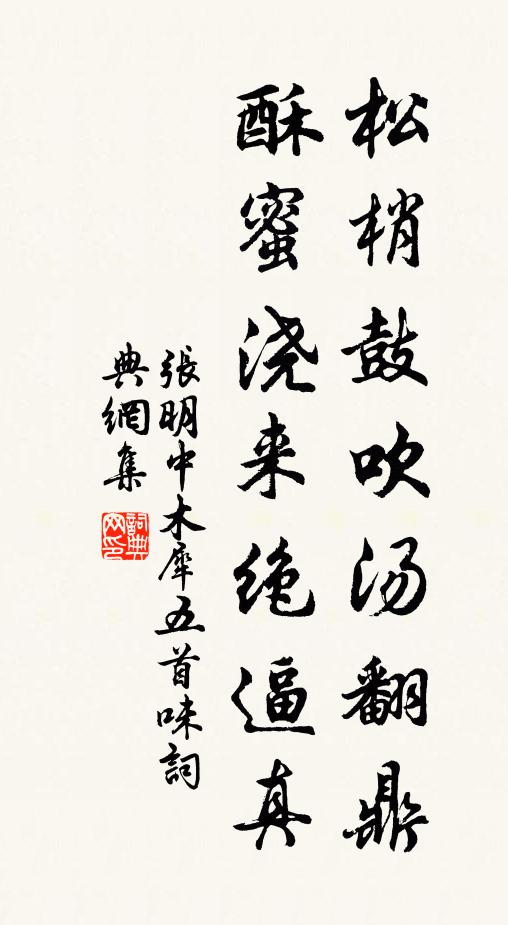 松梢鼓吹汤翻鼎
酥蜜浇来绝逼真
張明中木犀五首味詞
典網集
詞典网印